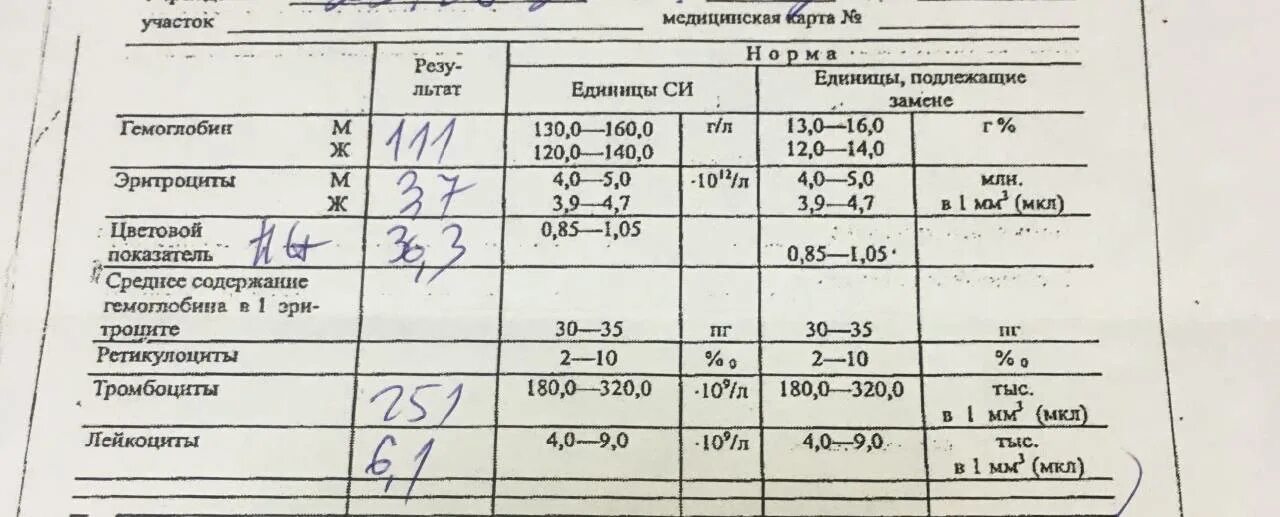 участок медицинская карта №
Резу-
льтат
Норма
Единицы СИ
Единицы, подлежащие
замене
Гемоглобин М 111 130,0—160,0 г/л 13,0—16,0 г%
Ж 120,0—140,0 12,0—14,0
Эритроциты М 37 4,0—5,0 ·10¹²/л 4,0—5,0 млн.
Ж 3,9—4,7 3,9—4,7 в 1 мм³ (мкл)
Цветовой 36,3 0,85—1,05
показатель 0,85—1,05
Среднее содержание
гемоглобина в 1 эри-
троците 30—35 пг 30—35 пг
Ретикулоциты 2—10 %₀ 2—10 %₀
Тромбоциты 251 180,0—320,0 ·10⁹/л 180,0—320,0 тыс.
в 1 мм³ (мкл)
Лейкоциты 6,1 4,0—9,0 ·10⁹/л 4,0—9,0 тыс.
в 1 мм³ (мкл)